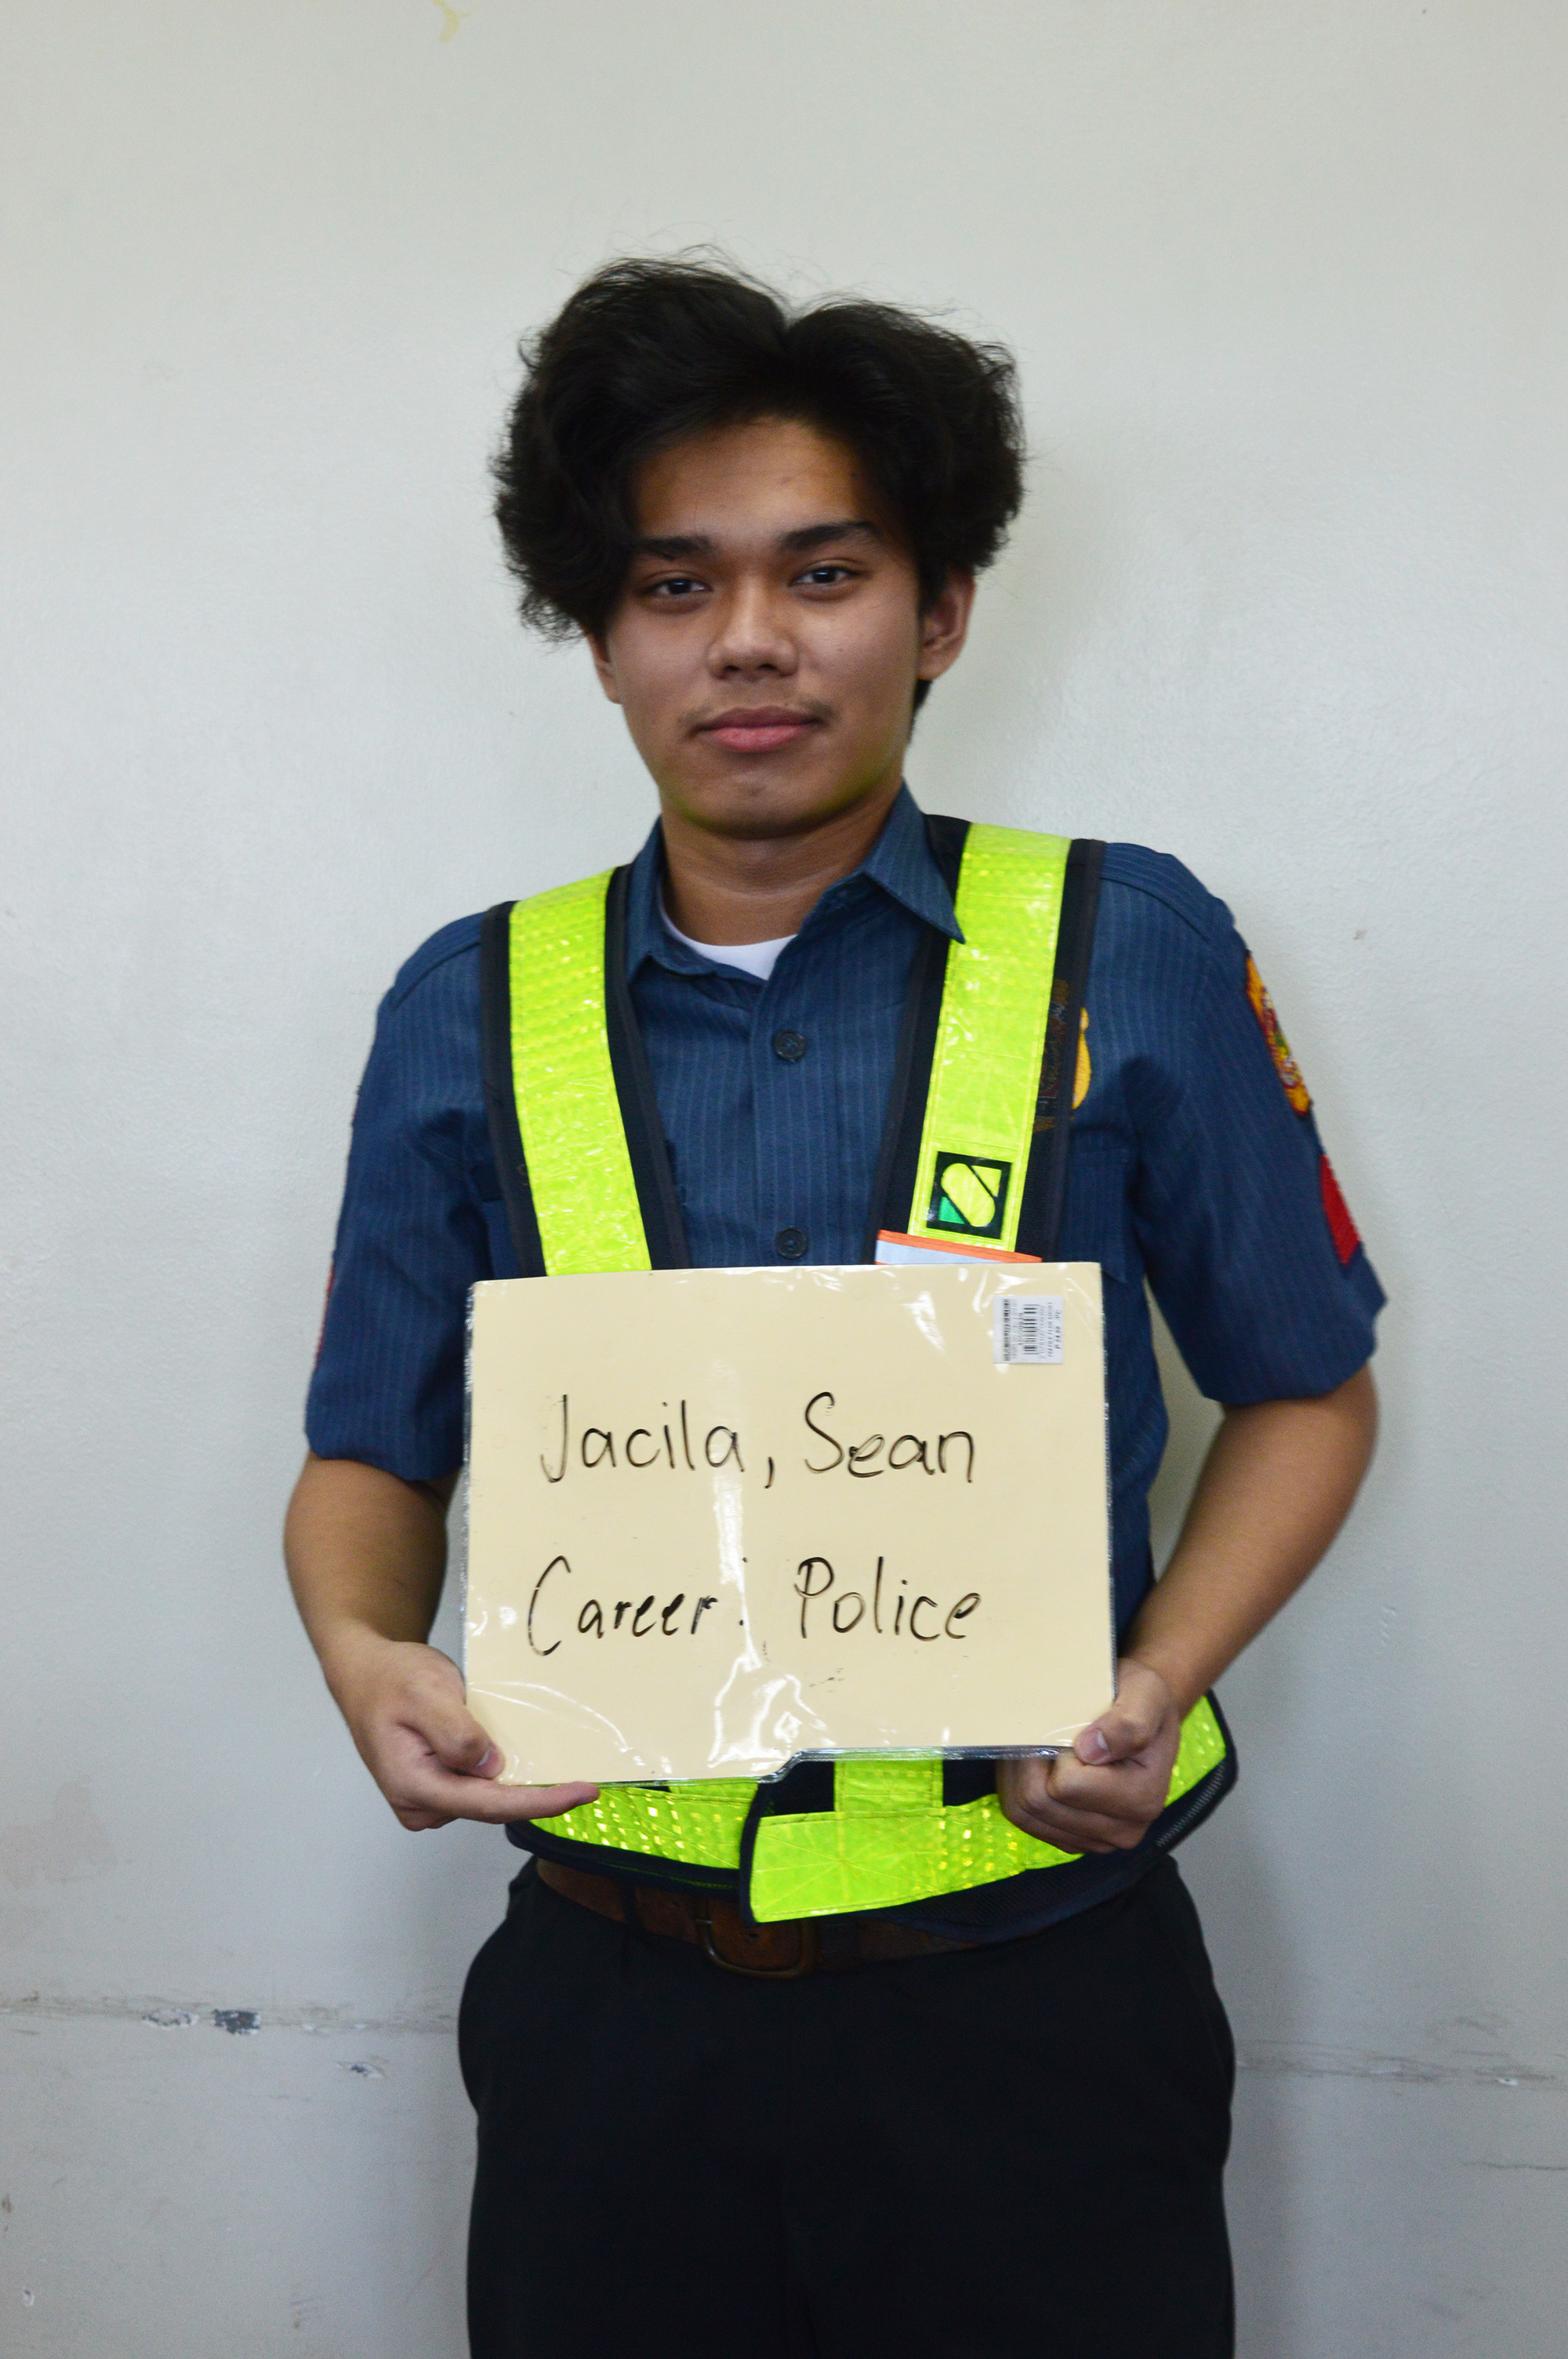 Jacila, Sean
Career: Police